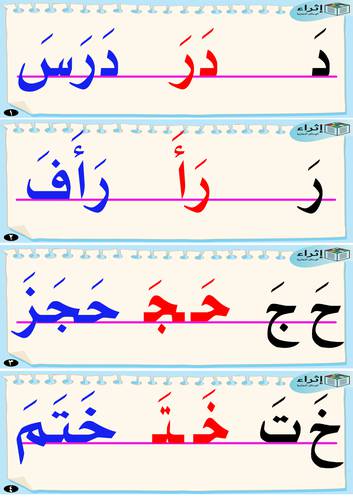 إثراء
دَ دَرَ دَرَسَ
١
إثراء
رَ رَأَ رَأَفَ
٢
إثراء
حَ جَ حَجَ حَجَزَ
٣
إثراء
خَ تَ خَتَ خَتَمَ
٤